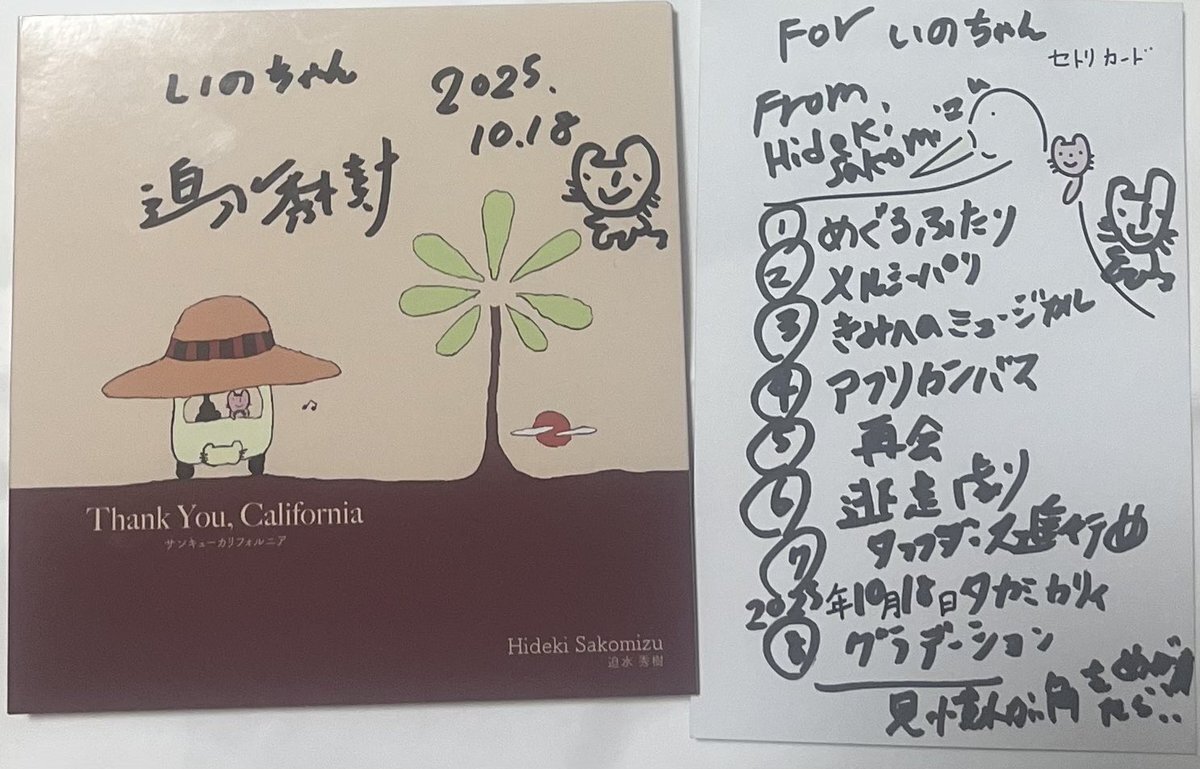 いのちゃん
2025.
10.18
迫水秀樹
Thank You, California
サンキューカリフォルニア
Hideki Sakomizu
迫水 秀樹
For いのちゃん
セトリカード
From.
Hideki
Sakomi
① めぐるふたり
② メルシーパリ
③ きみへのミュージカル
④ アフリカンバス
⑤ 再会
⑥ 逃走
⑦
2025年10月18日タカミカリィ
⑧ グラデーション